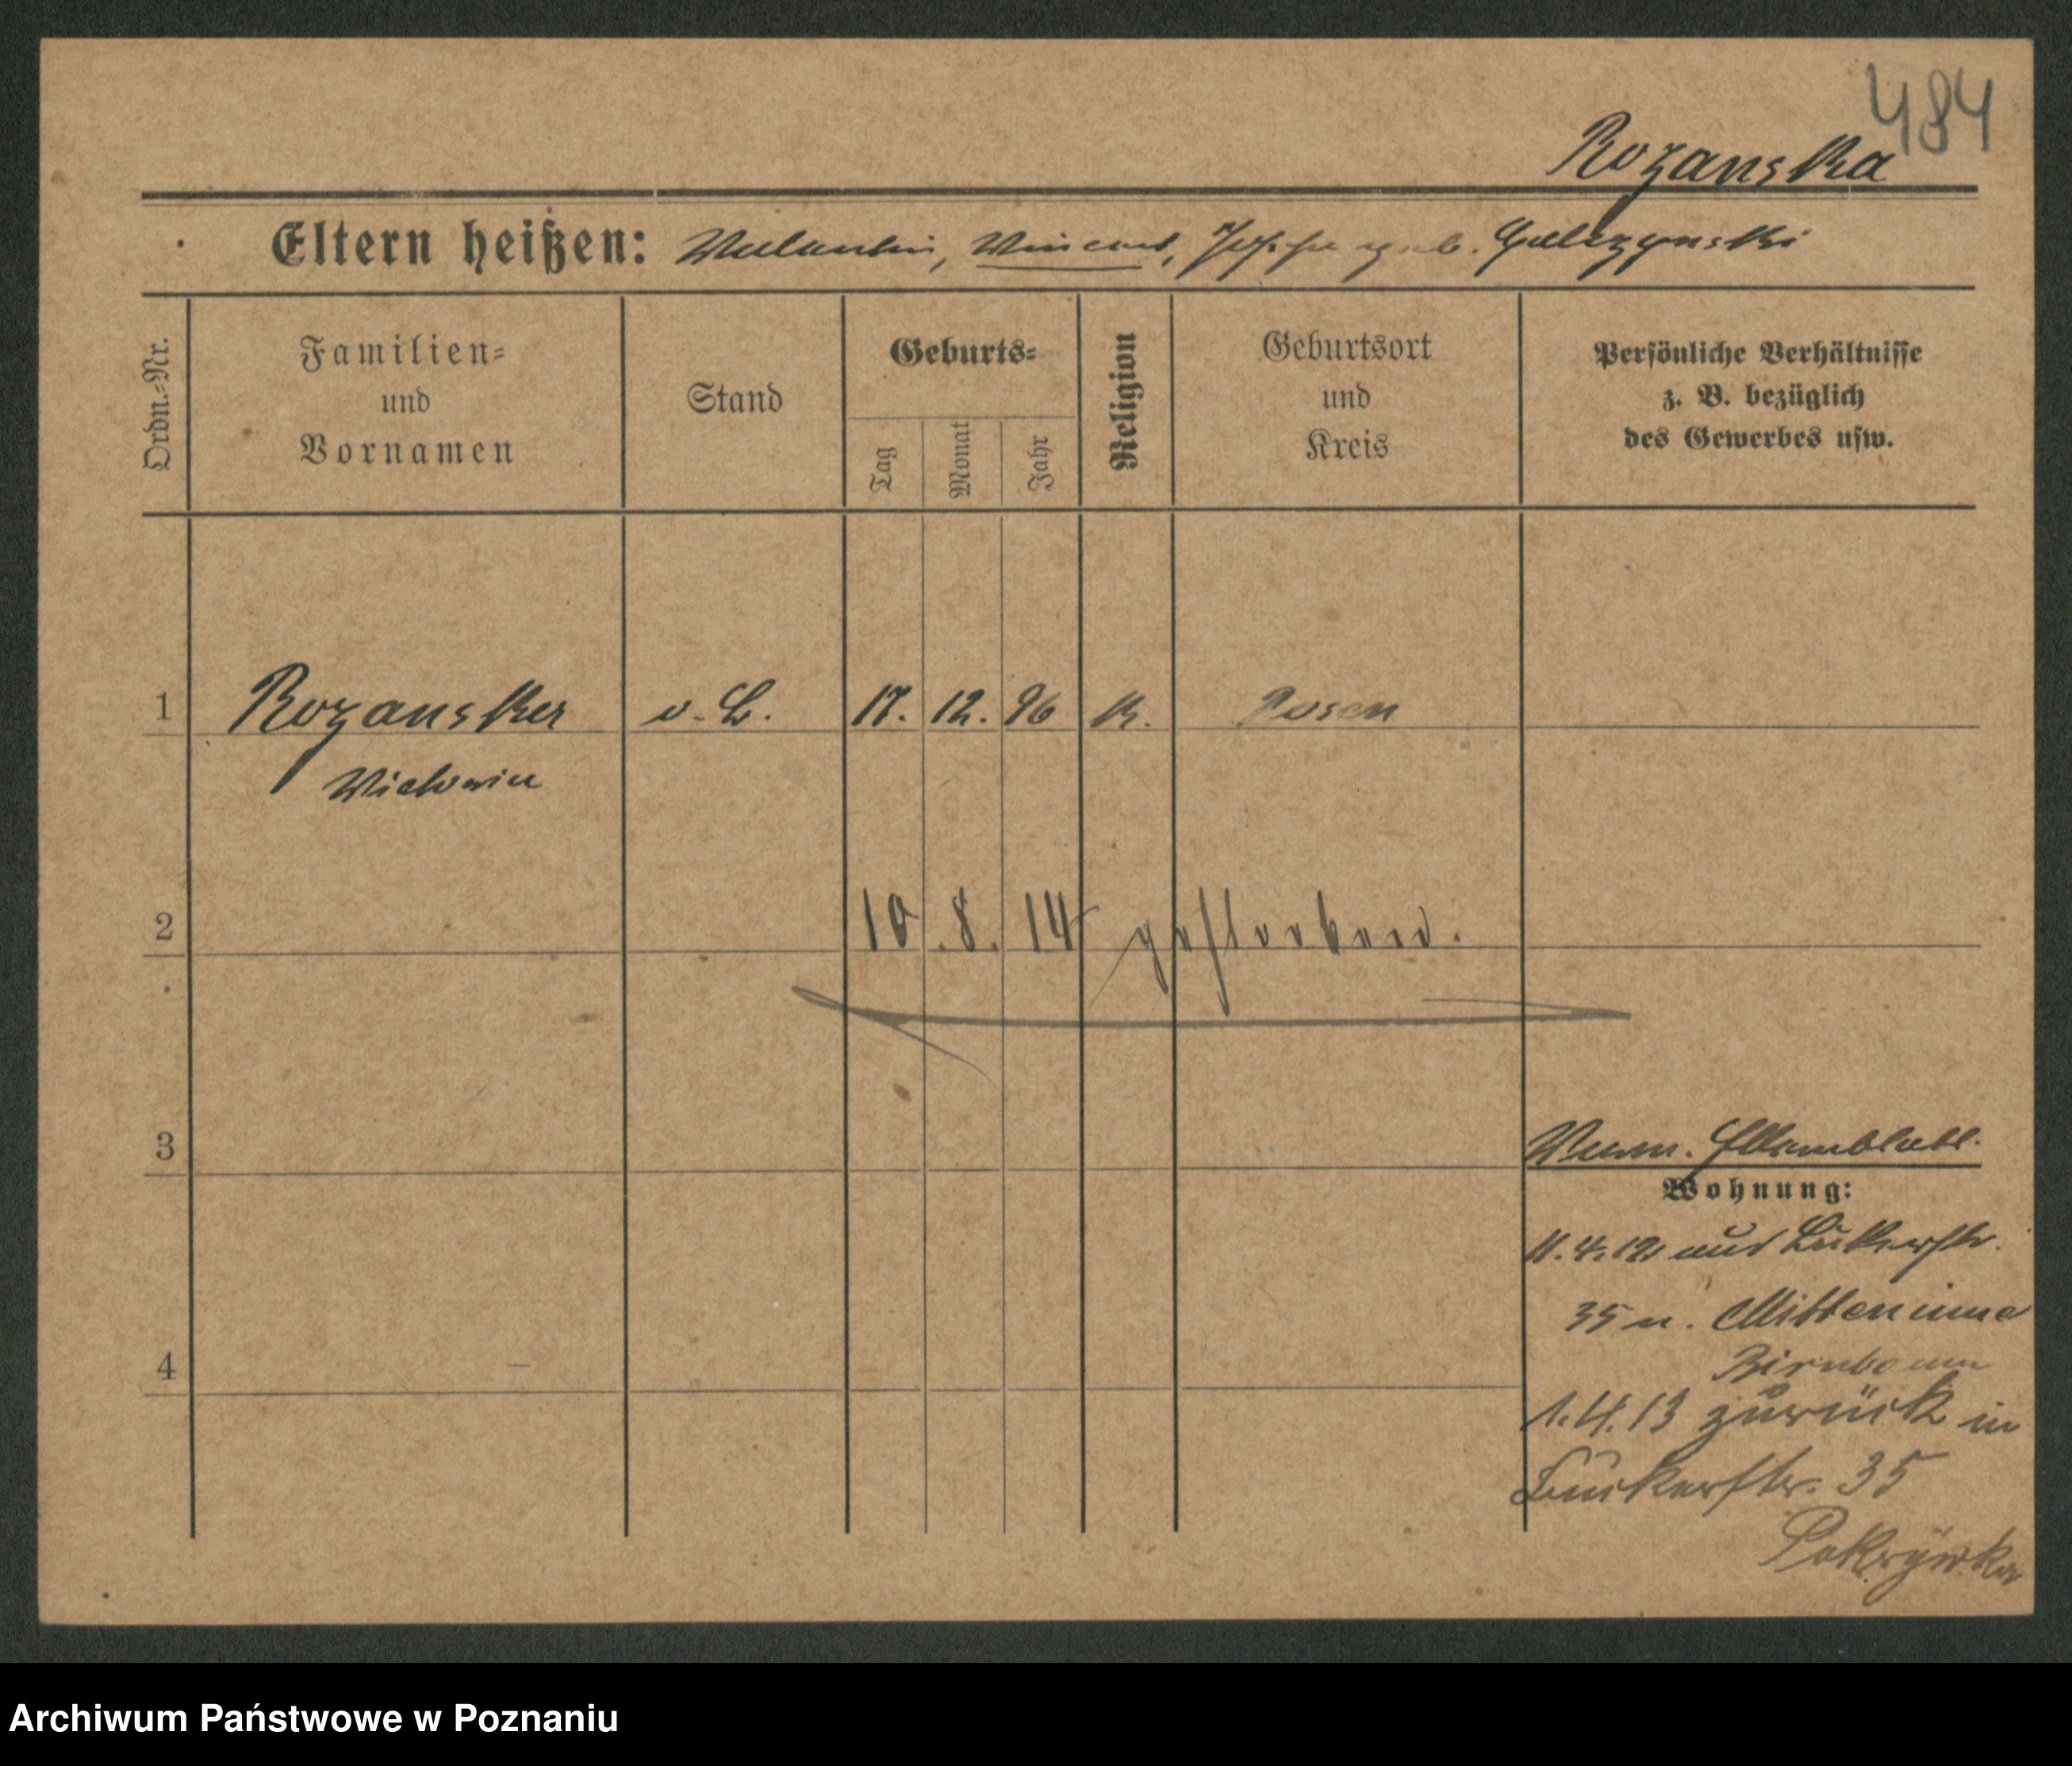 484
Rozanska
Eltern heißen: Valentin, Vincent, geb.
Ordn.-Nr.
Familien-
und
Vornamen
Stand
Geburts-
Tag
Monat
Jahr
Religion
Geburtsort
und
Kreis
Persönliche Verhältnisse
z. B. bezüglich
des Gewerbes usw.
1 Rozanska o. B. 17. 12. 96 K. Posen
Victoria
2 10. 8. 14 gestorben.
3
Wohnung:
11. 4. 12 aus
35 n. Mitteninne
Birnbaum
4
1.4.13 zurück in
35
Pokrywka
Archiwum Państwowe w Poznaniu